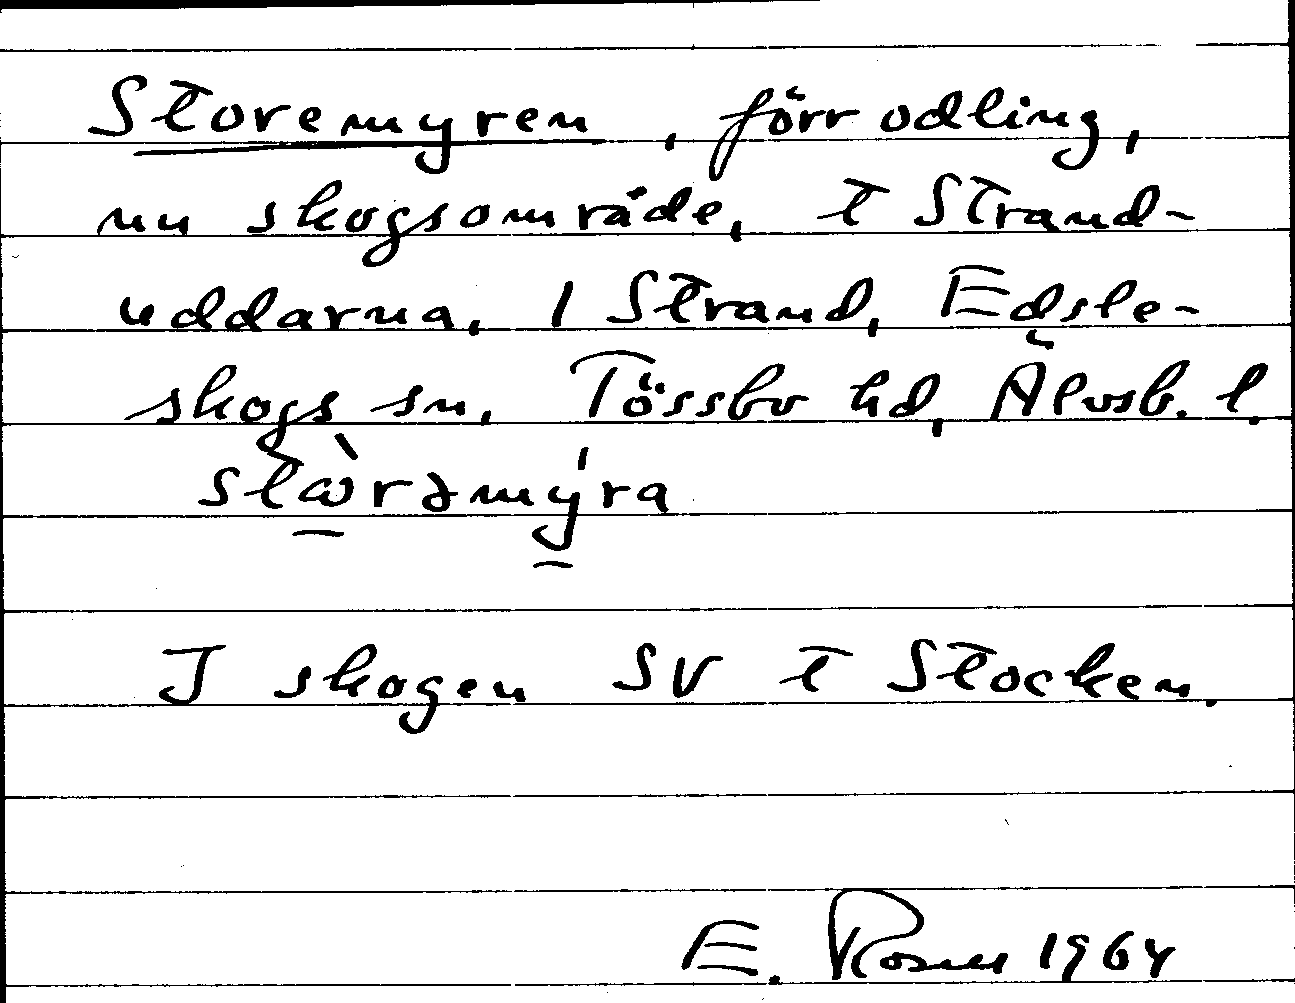 Storemyren, förr odling,
nu skogsområde, t Strand-
uddarna, 1 Strand, Edsle-
skogs sn, Tössbo hd, Älvsb. l.
stꞷ̀rəmýra
I skogen SV t Stocken.
E. Rosell 1964